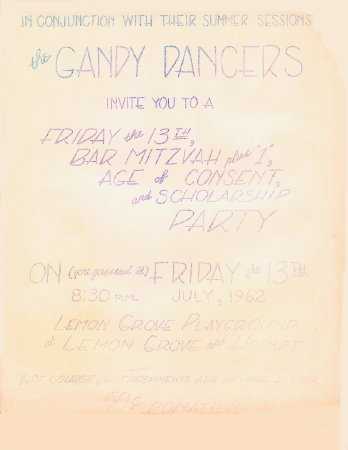 IN CONJUNCTION WITH THEIR SUMMER SESSIONS
the GANDY DANCERS
INVITE YOU TO A
FRIDAY the 13TH,
BAR MITZVAH plus "1",
AGE of CONSENT,
and SCHOLARSHIP
PARTY
ON (you guessed it) FRIDAY the 13TH
8:30 P.M. JULY, 1962
LEMON GROVE PLAYGROUND
at LEMON GROVE and HOBART
OF COURSE, REFRESHMENTS ARE INCLUDED IN YOUR
50¢ DONATION